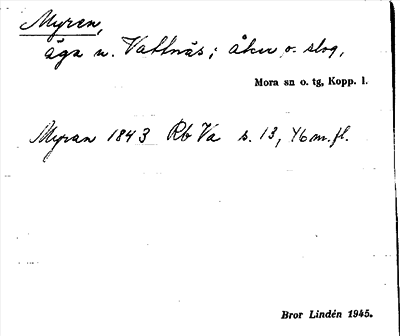 Myren,
äga n. Vattnäs; åker o. slog,
Mora sn o. tg, Kopp. l.
Myran 1843 Rb Va s. 13, 46 m. fl.
Bror Lindén 1945.